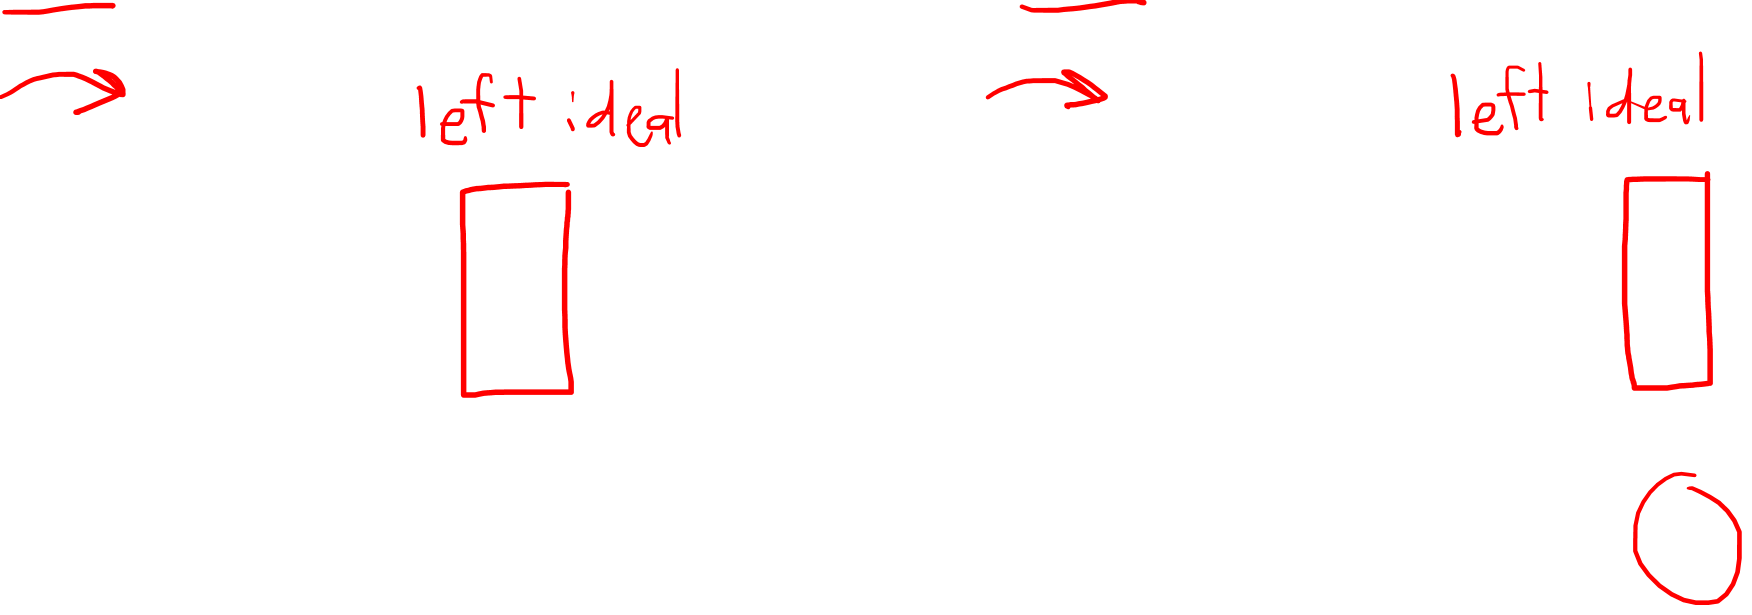 left ideal
left ideal